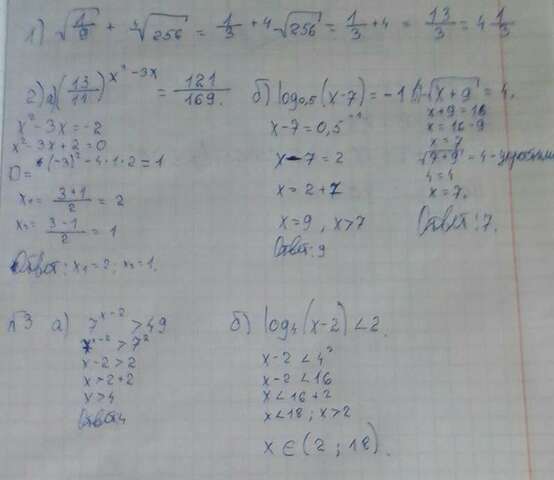 1) √1/9 + ⁴√256 = 1/3 + ⁴√256 = 1/3 + 4 = 13/3 = 4 1/3
2) а) (13/11)^x²-3x = 121/169.
x² - 3x = -2
x² - 3x + 2 = 0
D = (-3)² - 4·1·2 = 1
x₁ = 3+1/2 = 2
x₂ = 3-1/2 = 1
Ответ: x₁ = 2; x₂ = 1.
б) log₀,₅(x-7) = -1
x-7 = 0,5⁻¹
x-7 = 2
x = 2+7
x = 9, x>7
Ответ: 9
√x+9 = 4.
x+9 = 16
x = 16-9
x = 7
√7+9 = 4 -
4 = 4
x = 7.
Ответ: 7.
№3 а) 7^x-2 > 49
7^x-2 > 7²
x-2 > 2
x > 2+2
x > 4
Ответ: 4
б) log₄(x-2) < 2
x-2 < 4²
x-2 < 16
x < 16+2
x < 18; x > 2
x ∈ (2; 18).